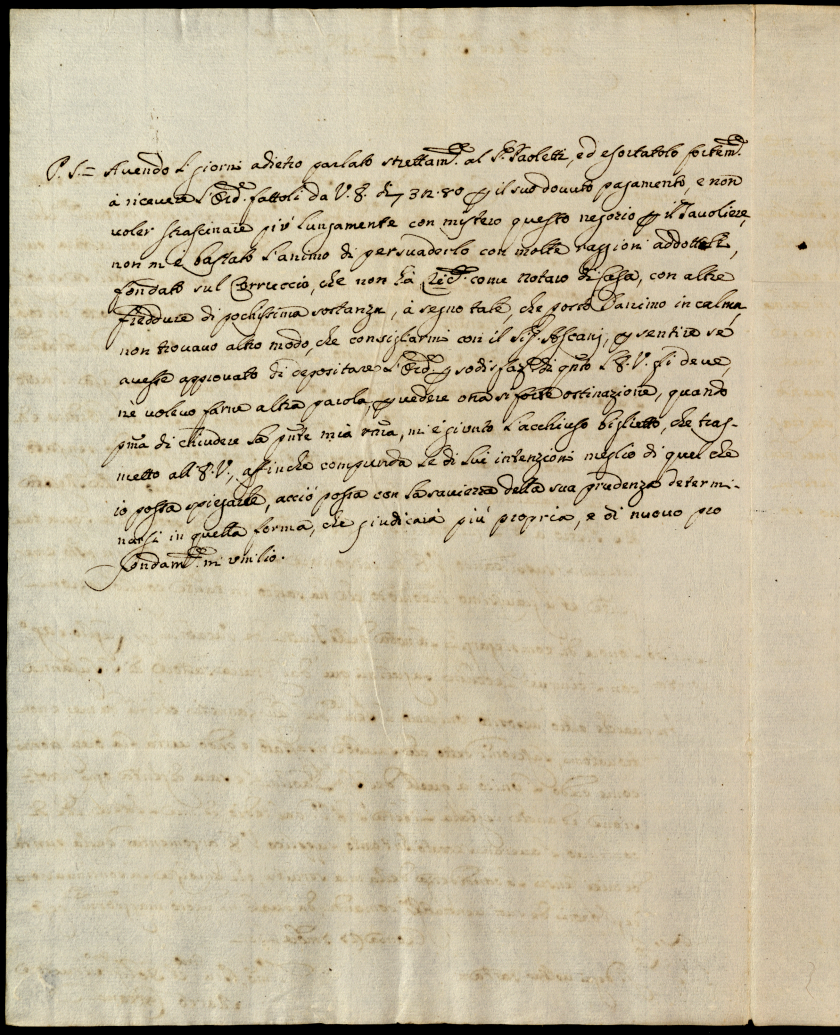 P. S.= Avendo l. giorni adietro parlato strettam.te al S.r Paoletti, ed esortatolo fortem.te
à ricevere l'Ord.e fattoli da V. S. di 73 12. 80 p il suo dovuto pagamento, e non
voler strascinare più lungamente con mistero questo negozio p il Tavoliere,
non m'è bastato l'animo di persuaderlo con molte raggioni addotteli,
fondato sul Corruccio, che non hà come notaro di Casa, con altre
freddure di pochissima sostanza, à segno tale, che posto l'animo in calma,
non trovavo altro modo, che consigliarmi con il Sig.r Ascani, p sentire se
avesse approvato di depositare l'Ord.e p sodisfaz.e di qnto V. S. li deve,
ne volevo farne altra parola, p vedere una sì forte ostinazione, quando
pma di chiudere la pnte mia rma, m'è giunto l'acchiuso biglietto, che tras-
metto all' V. S., affinche comprenda le di lui intenzioni meglio di quel che
io possa spiegarle, acciò possa con la saviezza della sua prudenza determi-
narsi in quella forma, che giudicarà più propria, e di nuovo pro
fondam.te m'umilio.